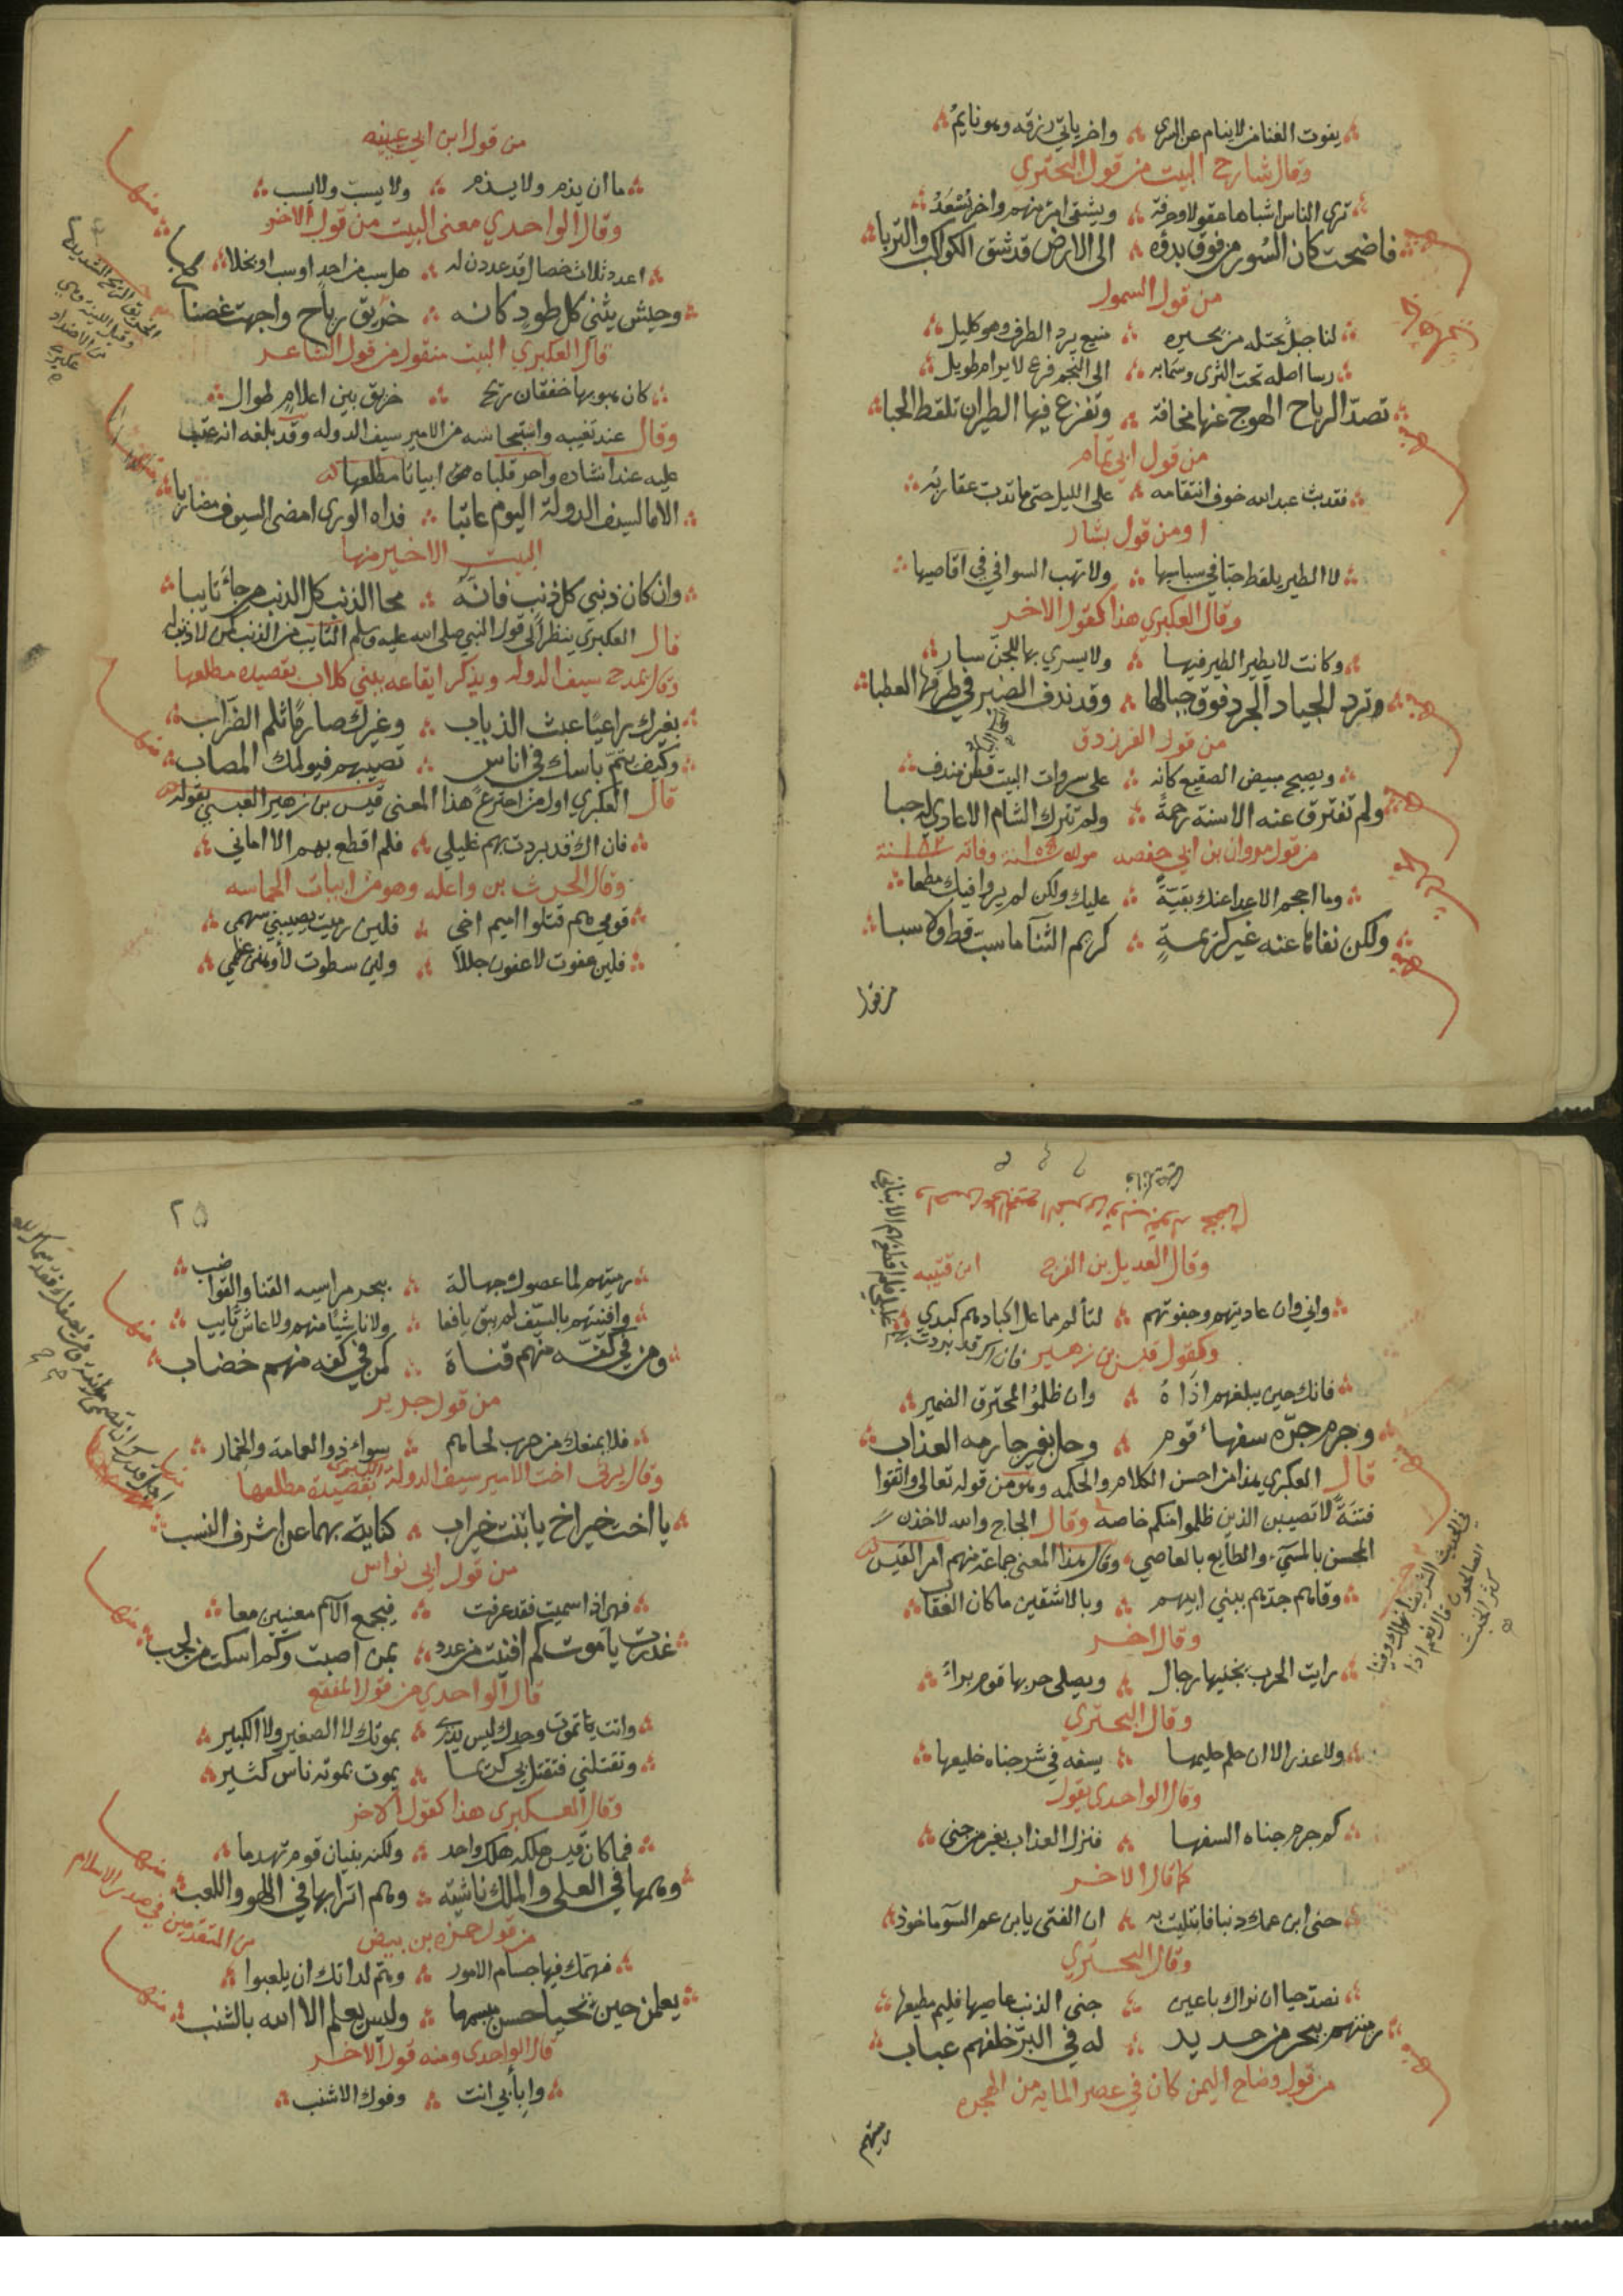 يفوت الغنا من لاينام عن السرى واخر ياتي رزقه وهو نايم
وقال شارح البيت من قول البحتري
ترى الناس اشباها مقولا وحرفة ويشقى امرء منهم واخر يسعد
فاضحت كان السور من فوق بدؤه الى الارض قد شق الكواكب والتربا
من قول السمول
لنا جبل يحتله من نجيره منيع يرد الطرف وهو كليل
رسا اصله تحت الثرى وسما به الى النجم فرع لا يرام طويل
تصد الرياح الهوج عنها مخافة وتفزع فيها الطيران تلقط الحبا
من قول ابي تمام
فقد بث عبد الله خوف انتقامه على الليل حتى ما تدب عقاربه
او من قول بشار
لا الطير يلقط حبا في سباسبها ولا تهب السوافي في اقاصيها
وقال العكبري هذا كقول الاخر
وكانت لا يطير الطير فيها ولا يسري بها للجن سار
وتردى الجياد الجرد فوق جبالها وقد ندف الصنبر في طرقها العطبا
من قول الفرزدق
ويصبح مبيض الصقيع كانه على سروات البيت قطن مندف
ولم تفترق عنه الاسنة رحمة ولم تترك الشام الاعادي له حبا
من قول مروان بن ابي حفصه مولده سنة ١٠٥ وفاته سنة ١٨٢
وما احجم الاعدا عنك بقية عليك ولكن لم يروا فيك مطمعا
ولكن نفاها عنه غير كريمة كريم الثنا ما سبت قط ولا سبا
من قول
من قول ابن ابي عيينه
ما ان يذم ولا يذم ولا يسب ولا يسب
وقال الواحدي معنى البيت من قول الاخر
اعدد ثلاث خصال قد عددن له هل سب من احد او سب او بخلا
وجيش يثني كل طود كانه خريق رياح واجهت غصنا
قال العكبري البيت منقول من قول الشاعر
كان هبوبها خفقان ريح خريق بين اعلام طوال
وقال عند تغيبه واستبطائه من الامير سيف الدوله وقد بلغه انه عتب
عليه عند انشاده واحر قلباه ابياتا مطلعها
الا ما لسيف الدولة اليوم عاتبا فداه الورى امضى السيوف مضاربا
البيت الاخير منها
وان كان ذنبي كل ذنب فانه محا الذنب كل الذنب من جاء تايبا
قال العكبري ينظر الى قول النبي صلى الله عليه وسلم التايب من الذنب كمن لا ذنب له
وقال يمدح سيف الدوله ويذكر ايقاعه ببني كلاب بقصيده مطلعها
بغيرك راعيا عبث الذياب وغيرك صارما ثلم الضراب
وكيف يتم باسك في اناس تصيبهم فيولمك المصاب
قال العكبري اول من اخترع هذا المعنى قيس بن زهير العبسي بقوله
فان اك قد بردت بهم غليلي فلم اقطع بهم الا اماني
وقال الحرث بن واعله وهو من ابيات الحماسه
قومي هم قتلوا اميم اخي فلين رميت يصيبني سهمى
فلين عفوت لاعفون جللا ولين سطوت لاوهنن عظمي
وقال العديل بن الفرج
ابن قتيبه
واني وان عاديتهم وجفوتهم لتالم مما عل اكبادهم كبدي
وكقول قيس بن زهير فان اك قد بردت بهم غليلي فلم اقطع بهم الا بناني
فانك حين يبلغهم اذاة وان ظلموا لمحترق الضمير
وجرم جره سفهاء قوم وحل بغير جارمه العذاب
قال العكبري هذا من احسن الكلام والحكمه وهو من قوله تعالى واتقوا
فتنة لا تصيبن الذين ظلموا منكم خاصة وقال الحجاج والله لاخذن
المحسن بالمسيء والطايع بالعاصي وقال هذا المعنى جماعة منهم امر القيس
وقاهم جدهم ببني ابيهم وبالاشقين ما كان العقاب
وقال اخر
رايت الحرب يجنيها رجال ويصلى حربها قوم براء
وقال البحتري
ولا عذر الا ان حلم حليمها يسفه في شر جناه خليعها
وقال الواحدي بقول
كم جرم جناه السفها فنزل العذاب بغير من جنى
كما قال الاخر
جنى ابن عمك ذنبا فابتليت به ان الفتى يا بن عم السوء ماخوذ
وقال البحتري
نصد حيا ان نراك باعين جنى الذنب عاصيها فليم مطيعها
رميتهم ببحر من حديد له في البر خلفهم عباب
من قول وضاح اليمن كان في عصر المايه من الهجره
رميتهم
٢٥
رميتهم لما عصوك جهالة ببحر مراسيه القنا والقواضب
وافنيتهم بالسيف لم يبق يافعا ولا ناشيا منهم ولا عاش شايب
ومن في كفه منهم قناة كمن في كفه منهم خضاب
من قول جرير
فلا يمنعك من حرب لحاهم سواء ذو العمامة والخمار
وقال يرثي اخت الامير سيف الدولة الكبرى بقصيدة مطلعها
يا اخت خير اخ يا بنت خير اب كناية بهما عن اشرف النسب
من قول ابي نواس
فهي اذا سميت فقد عرفت فيجمع الاسم معنيين معا
غدرت يا موت كم افنيت من عدد بمن اصبت وكم اسكت من لجب
قال الواحدي من قول المقفع
وانت تموت وحدك ليس يدرى بموتك لا الصغير ولا الكبير
وتقتلني فتقتل بي كريما يموت بموته ناس كثير
وقال العكبري هذا كقول الاخر
فما كان قيس هلكه هلك واحد ولكنه بنيان قوم تهدما
وهمها في العلى والملك ناشية وهم اترابها في اللهو واللعب
من قول حمزه بن بيض من المتقدمين في صدر الاسلام
فهمك فيها جسام الامور وهم لداتك ان يلعبوا
يعلمن حين تحيا حسن مبسمها وليس يعلم الا الله بالشنب
قال الواحدي ومنه قول الاخر
وا بابي انت وفوك الاشنب